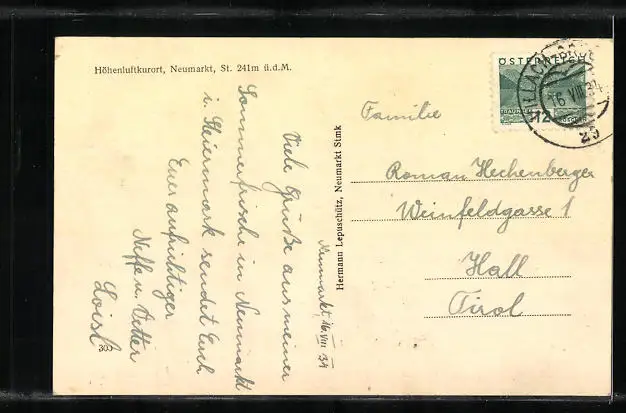 Höhenluftkurort, Neumarkt, St. 241m ü.d.M.
ÖSTERREICH
12
VILLACH
16 VIII 34
Neumarkt, 16 VIII 34
Viele Grüße aus meiner
Sommerfrische in Neumarkt
i. Steiermark sendet Euch
Euer aufrichtiger
Neffe u. Vetter
Loisl
303
Hermann Lepuschütz, Neumarkt Stmk
Familie
Roman Hechenberger
Weinfeldgasse 1
Hall
Tirol